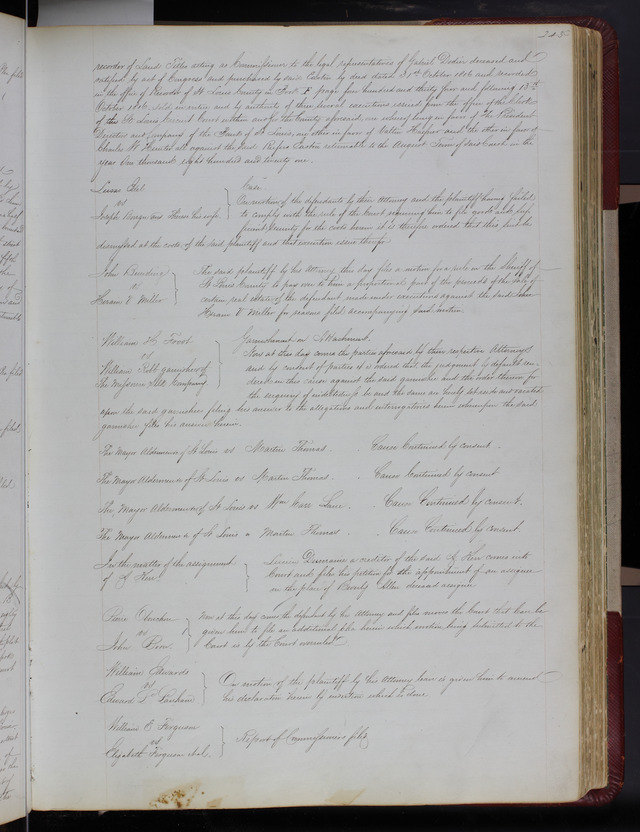 recorder of Land Titles acting as Commissioner to the legal representatives of Gabriel Dodier deceased and
certified by act of Congress and purchased by said Easton by deed dated 31st October 1816 and recorded
in the office of Recorder of St Louis County in Book F page four hundred and thirty four and following 13th
October 1816, sold in entire and by authority of three several executions issued from the office of the Clerk
of the St Louis Circuit Court within and for the County aforesaid, one whereof being in favor of The President
Directors and Company of the Bank of St Louis, one other in favor of and the other in favor of
Charles W Hunter all against the said Rufus Easton returnable to the August Term of said Court in the
year One thousand eight hundred and twenty one.
vs
Joseph and his wife
Case.
On motion of the defendants by their attorney and the plaintiff having failed
to comply with the rule of the Court requiring him to file good and suf-
ficient security for the costs herein it is therefore ordered that this suit be
dismissed at the costs of the said plaintiff and that execution issue therefor
John
vs
Hiram V Miller
The said plaintiff by his attorney this day files a motion for a rule on the Sheriff of
St Louis County to pay over to him a proportional part of the proceeds of the sale of
certain real estate of the defendant made under executions against the said
Hiram V Miller for reasons filed accompanying said motion.
William H
vs
William garnishee of
The Missouri Company
Garnishment on Attachment.
Now at this day comes the parties aforesaid by their respective Attorneys
and by consent of parties it is ordered that the judgment by default ren-
dered in this cause against the said garnishee and the order therein for
the inquiry of be and the same are hereby set aside and vacated
upon the said garnishee filing his answer to the allegations and interrogatories herein whereupon the said
garnishee files his answer herein.
The Mayor Aldermen of St Louis vs Martin Thomas. Cause Continued by consent.
The Mayor Aldermen of St Louis vs Martin Thomas. Cause Continued by consent
The Mayor Aldermen of St Louis vs Wm Carr Lane. Cause Continued by consent.
The Mayor Aldermen of St Louis vs Martin Thomas. Cause Continued by consent.
In the matter of the assignment
of
a creditor of the said comes into
Court and files his petition for the appointment of an assignee
in the place of Beverly Allen deceased assignee
vs
John
Now at this day comes the defendant by his Attorney and moves the Court that leave be
given him to file an additional plea herein which motion being submitted to the
Court is by the Court overruled
William Edwards
vs
Edward
On motion of the plaintiff by his Attorney leave is given him to amend
his declaration herein by insertion which is done
William E Ferguson
vs
Elizabeth Ferguson et al.
Report of Commissioners filed